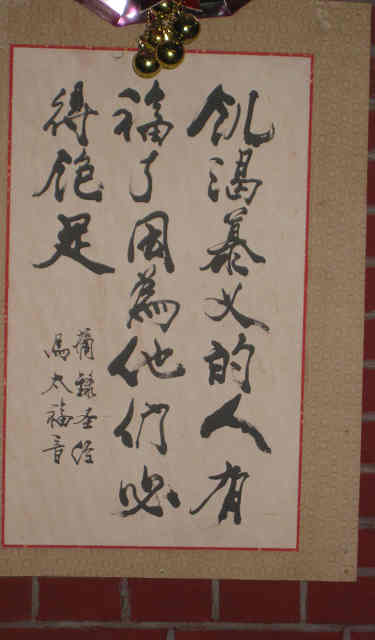 飢渴慕义的人有
福了因為他们必
得飽足
摘錄圣经
馬太福音